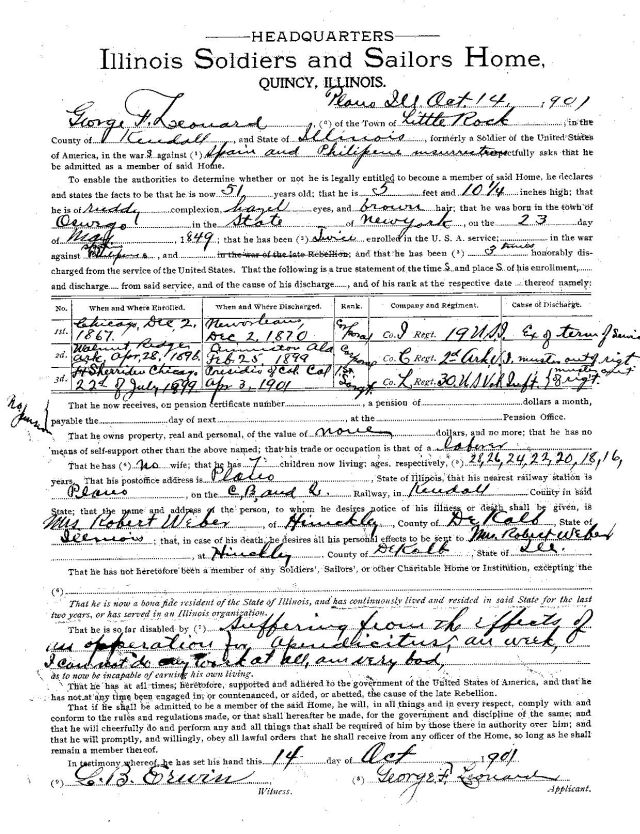 HEADQUARTERS
Illinois Soldiers and Sailors Home,
QUINCY, ILLINOIS.
Plano Ill. Oct. 14, 1901
George F. Leonard, (¹) of the Town of Little Rock, in the
County of Kendall, and State of Illinois, formerly a Soldier of the United States
of America, in the war s against (²) Spain and Philipine respectfully asks that he
be admitted as a member of said Home.
To enable the authorities to determine whether or not he is legally entitled to become a member of said Home, he declares
and states the facts to be that he is now 51 years old; that he is 5 feet and 10 1/4 inches high; that
he is of ruddy complexion, hazel eyes, and brown hair; that he was born in the town of
Oswego in the State of New York, on the 23 day
of May 1849; that he has been (³) Twice enrolled in the U. S. A. service; in the war
against Philipines, and in the war of the late Rebellion; and that he has been (³) 3 times honorably dis-
charged from the service of the United States. That the following is a true statement of the time s and place s of his enrollment,
and discharge from said service, and of the cause of his discharge, and of his rank at the respective date thereof namely;
No. When and Where Enrolled. When and Where Discharged. Rank. Company and Regiment. Cause of Discharge.
1st. Chicago, Dec 2, 1867. New orleans, Dec 2, 1870 Co. I Regt. 19 U.S.I. Ex of term of
2d. Walnut Ridge, Ark, Apr. 28, 1898 Anniston Ala Feb 25, 1899 Co. C Regt. 2d Ark. V.I. muster out of rigt
3d. Ft Sherridan Chicago 22d of July 1899 Presidio of Cal. Cal Apr. 3, 1901 Co. L Regt. 30 U.S. Vol Inft muster out of rigt.
That he now receives, on pension certificate number, a pension of dollars a month,
payable the day of next, at the Pension Office.
That he owns property, real and personal, of the value of none dollars, and no more; that he has no
means of self-support other than the above named; that his trade or occupation is that of a laborer
That he has (⁴) no wife; that he has 7 children now living; ages, respectively, 28, 26, 24, 22, 20, 18, 16,
years. That his postoffice address is Plano, State of Illinois, that his nearest railway station is
Plano, on the C. B. and Q. Railway, in Kendall County in said
State; that the name and address of the person, to whom he desires notice of his illness or death shall be given, is
Mrs Robert Weber of Hinckley, County of De Kalb, State of
Illinois; that, in case of his death, he desires all his personal effects to be sent to Mrs. Robert Weber
, at Hinckley, County of DeKalb, State of Ill.
That he has not heretofore been a member of any Soldiers', Sailors', or other Charitable Home or Institution, excepting the
(⁶)
That he is now a bona fide resident of the State of Illinois, and has continuously lived and resided in said State for the last
two years, or has served in an Illinois organization.
That he is so far disabled by (⁷) Suffering from the effects of
an opperation for apendicitus, am week,
I can not do any work at all, am very bad,
as to now be incapable of earning his own living.
That he has at all times, heretofore, supported and adhered to the government of the United States of America, and that he
has not at any time been engaged in, or countenanced, or aided, or abetted, the cause of the late Rebellion.
That if he shall be admitted to be a member of the said Home, he will, in all things and in every respect, comply with and
conform to the rules and regulations made, or that shall hereafter be made, for the government and discipline of the same; and
that he will cheerfully do and perform any and all things that shall be required of him by those there in authority over him; and
that he will promptly, and willingly, obey all lawful orders that he shall receive from any officer of the Home, so long as he shall
remain a member thereof.
In testimony whereof, he has set his hand this 14 day of Oct 1901
(⁹) C. B. Erwin (⁸) George F. Leonard
Witness. Applicant.